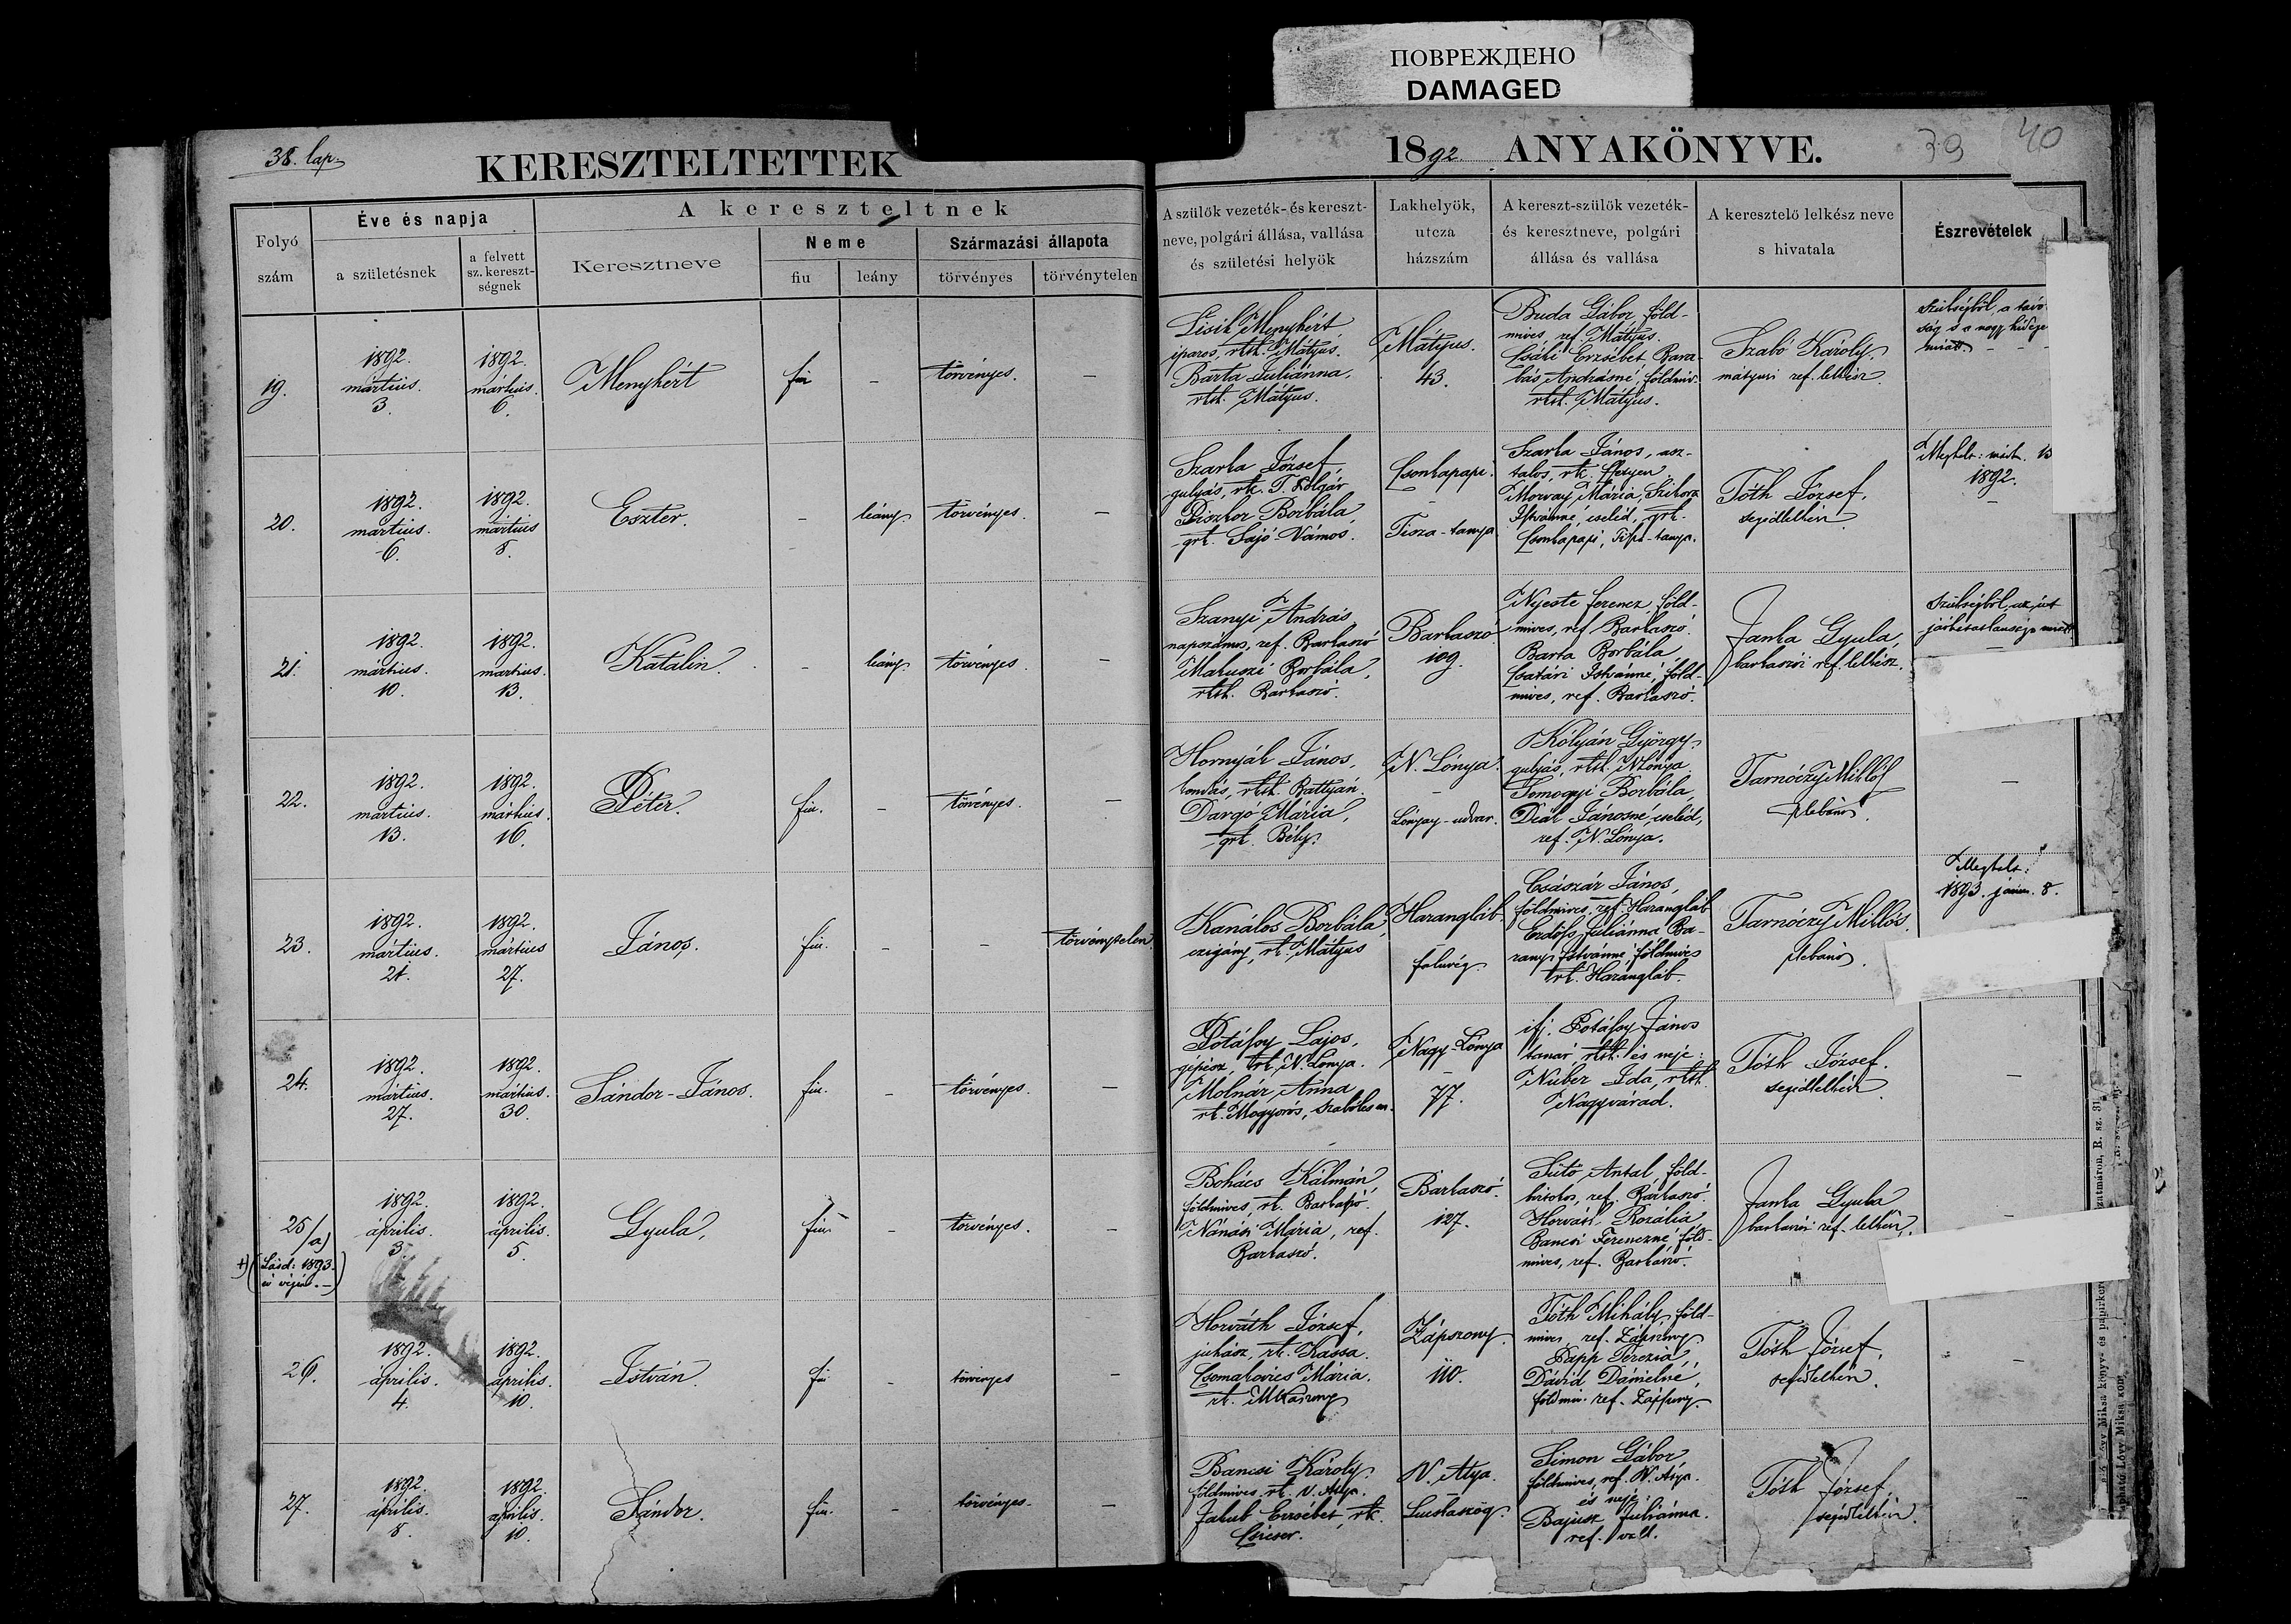 ПОВРЕЖДЕНО
DAMAGED
38. lap.
KERESZTELTETTEK
1892. ANYAKÖNYVE.
39
40
Folyó
szám
Éve és napja
a születésnek
a felvett
sz. kereszt-
ségnek
A kereszteltnek
Keresztneve
Neme
fiu
leány
Származási állapota
törvényes
törvénytelen
A szülők vezeték- és kereszt-
neve, polgári állása, vallása
és születési helyök
Lakhelyök,
utcza
házszám
A kereszt-szülők vezeték-
és keresztneve, polgári
állása és vallása
A keresztelő lelkész neve
s hivatala
Észrevételek
19.
1892.
mártius.
3.
1892.
mártius.
6.
Menyhért
fiu
-
törvényes.
-
Menyhért
iparos, Mátyus.
Barta Juliánna,
Mátyus.
Mátyus.
43.
Buda Gábor, föld-
mives, ref. Mátyus.
Erzsébet Bara-
bás Andrásné, földmiv.
Mátyus.
Szabó Károly.
mátyusi ref. lelkész.
Szükségből, a távo-
ság s a nagy hideg
miatt.
20.
1892.
mártius.
6.
1892.
mártius
8.
Eszter.
-
leány
törvényes.
-
Szarka József,
gulyás, rk. T. Polgár
Piszkor Borbála
grk. Sajó-Vámos.
Csonkapapi.
-
Tisza-tanya
Szarka János, asz-
talos, rk.
Morvay Mária,
Istvánné, cseléd, grk.
Csonkapapi, tanya.
Tóth József,
segédlelkész
Meghalt: márt. 13
1892.
21.
1892.
mártius.
10.
1892.
mártius.
13.
Katalin.
-
leány
törvényes.
-
Szanyi András
napszámos, ref. Barkaszó
Borbála,
Barkaszó.
Barkaszó
109.
Nyeste Ferencz, föld-
mives, ref. Barkaszó.
Barta Borbála,
Csatári Istvánné, föld-
mives, ref. Barkaszó.
Janka Gyula,
barkaszói ref. lelkész.
Szükségből, az út
járhatatlansága miatt
22.
1892.
mártius.
13.
1892.
mártius.
16.
Péter.
fiu.
-
törvényes.
-
Hornyák János,
kondás, Battyán.
Dargó Mária,
grk. Bély.
N. Lónya.
-
Lónyay-udvar.
Kólyán György
gulyás, N. Lónya
Somogyi Borbála,
Deák Jánosné, cseléd,
ref. N. Lónya.
Tarnóczy Miklós
plébános.
-
23.
1892.
mártius.
21.
1892.
mártius
27.
János.
fiu.
-
-
törvénytelen.
Kanálos Borbála
czigány, rk. Mátyus
Harangláb.
-
faluvég.
Császár János,
földmives, ref. Harangláb
Erdős Juliánna Ba-
rany Istvánné, földmives
Harangláb.
Tarnóczy Miklós.
plébános.
Meghalt:
1893. 8.
24.
1892.
mártius.
27.
1892.
mártius.
30.
Sándor-János.
fiu.
-
törvényes.
-
Potáfoy Lajos,
gépész, N. Lónya.
Molnár Anna
rk. Mogyorós, Szabolcs m.
Nagy-Lónya
-
77.
ifj. Potáfoy János
tanár és neje:
Nuber Ida,
Nagyvárad.
Tóth József.
segédlelkész
-
25/a)
+) (Lásd: 1893.
év végén.-)
1892.
április.
3.
1892.
április.
5.
Gyula,
fiu.
-
törvényes.
-
Bohács Kálmán,
földmives, rk. Barkaszó.
Nánási Mária, ref.
Barkaszó.
Barkaszó.
127.
Sütő Antal, föld-
birtokos, ref. Barkaszó.
Horváth Rozália
Bancsi Ferenczné, föld-
mives, ref. Barkaszó.
Janka Gyula
barkaszói ref. lelkész.
-
26.
1892.
április.
4.
1892.
április.
10.
István.
fiu
-
törvényes
-
Horváth József,
juhász, rk. Kassa.
Csomakovics Mária.
rk.
Zápszony
110.
Tóth Mihály, föld-
mives, ref. Zápszony
Papp Terézia,
Dávid Dánielné,
földmiv. ref. Zápszony
Tóth József,
segédlelkész.
-
27.
1892.
április.
8.
1892.
április.
10.
Sándor.
fiu.
-
törvényes.
-
Bancsi Károly,
földmives, rk. V. Atya.
Jakab Erzsébet, rk.
V. Atya.
-
Simon Gábor,
földmives, ref. V. Atya.
és neje
Bajusz Juliánna.
ref. vall.
Tóth József,
segédlelkész.
-